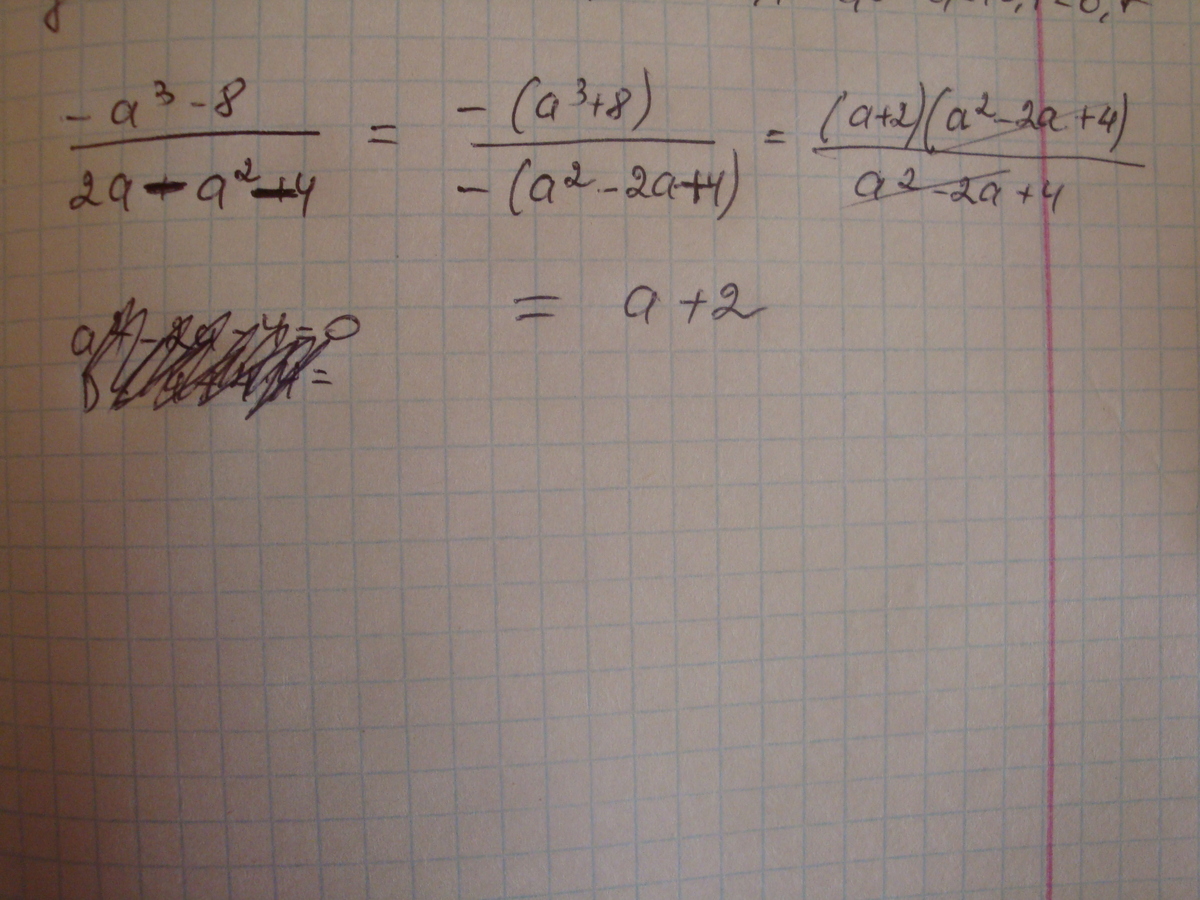 (-a³ - 8)/(2a - a² - 4) = (-(a³+8))/(-(a² - 2a + 4)) = ((a+2)(a² - 2a + 4))/(a² - 2a + 4)
= a + 2